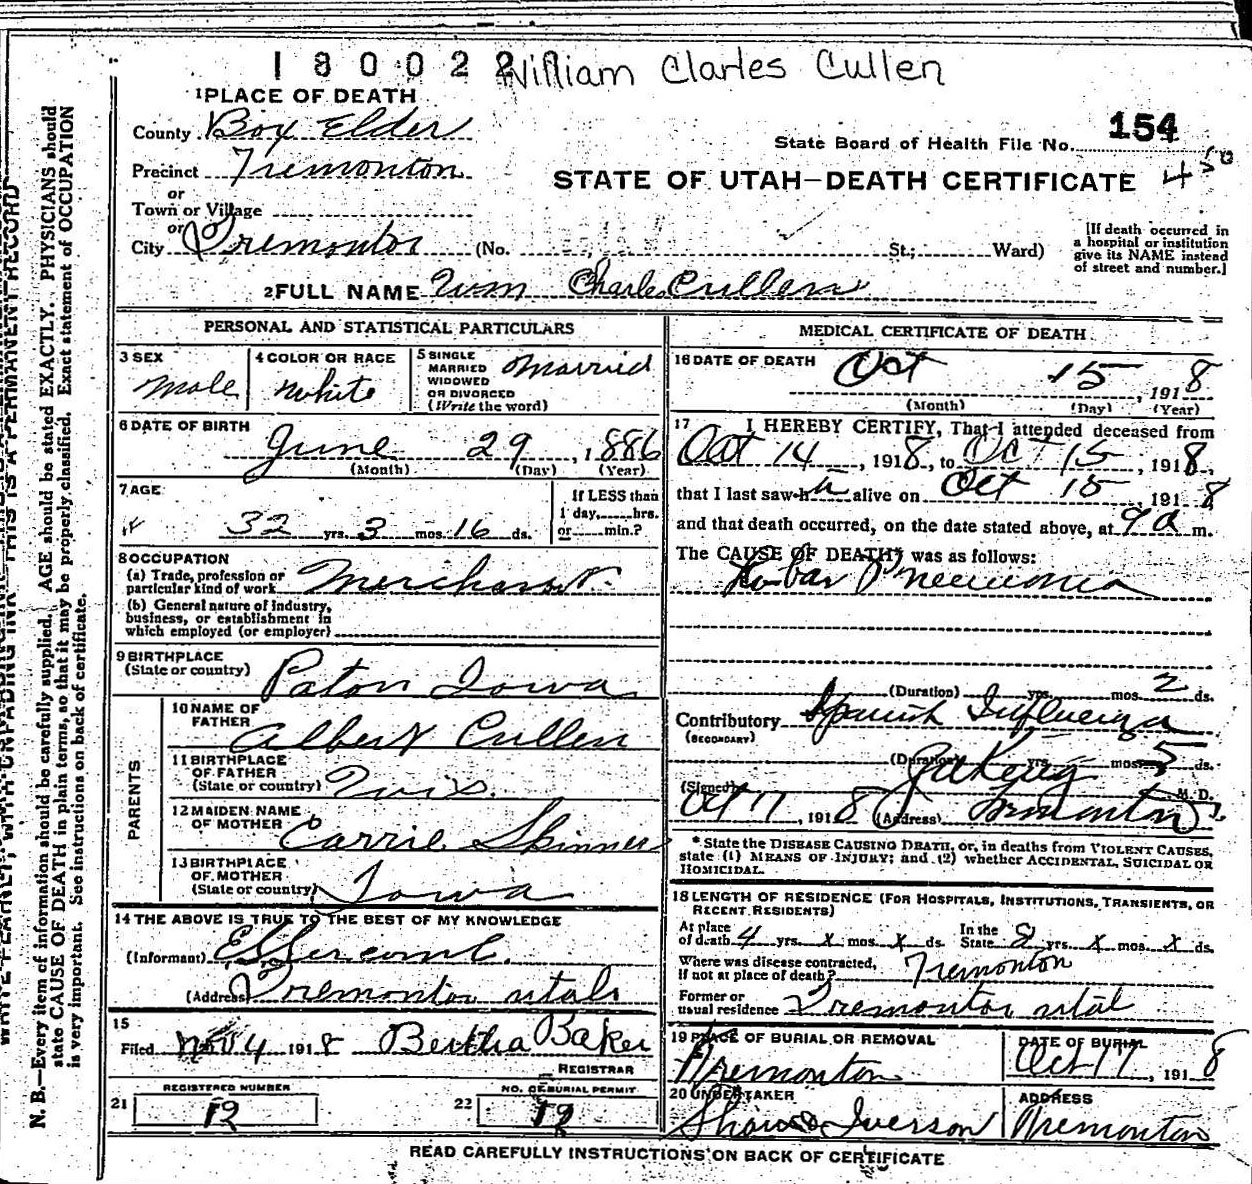 180022 William Clarles Cullen
1 PLACE OF DEATH
County Box Elder
154
State Board of Health File No.
Precinct Tremonton
STATE OF UTAH—DEATH CERTIFICATE 450
or
Town or Village
or
City Tremonton (No. St.; Ward)
[If death occurred in
a hospital or institution
give its NAME instead
of street and number.]
2 FULL NAME Wm Charles Cullen
PERSONAL AND STATISTICAL PARTICULARS
3 SEX
Male
4 COLOR OR RACE
White
5 SINGLE
MARRIED
WIDOWED
OR DIVORCED
(Write the word)
Married
6 DATE OF BIRTH
June 29, 1886
(Month) (Day) (Year)
7 AGE
32 yrs. 3 mos. 16 ds.
If LESS than
1 day, hrs.
or min.?
8 OCCUPATION
(a) Trade, profession or
particular kind of work Merchant
(b) General nature of industry,
business, or establishment in
which employed (or employer)
9 BIRTHPLACE
(State or country) Paton Iowa
PARENTS
10 NAME OF
FATHER
Albert Cullen
11 BIRTHPLACE
OF FATHER
(State or country) Wis.
12 MAIDEN NAME
OF MOTHER Carrie Skinner
13 BIRTHPLACE
OF MOTHER
(State or country) Iowa
14 THE ABOVE IS TRUE TO THE BEST OF MY KNOWLEDGE
(Informant)
(Address) Tremonton Utah
15
Filed Nov 4 1918 Bertha Baker
REGISTRAR
REGISTERED NUMBER
21 12
NO. OF BURIAL PERMIT
22 12
MEDICAL CERTIFICATE OF DEATH
16 DATE OF DEATH Oct 15, 1918
(Month) (Day) (Year)
17 I HEREBY CERTIFY, That I attended deceased from
Oct 14, 1918, to Oct 15, 1918,
that I last saw h alive on Oct 15 1918
and that death occurred, on the date stated above, at 9 a m.
The CAUSE OF DEATH* was as follows:
Lobar Pneumonia
(Duration) yrs. mos. 2 ds.
Contributory Spanish Influenza
(SECONDARY)
(Duration) yrs. mos. 5 ds.
(Signed) M. D.
Oct 17, 1918 (Address) Tremonton
* State the DISEASE CAUSING DEATH, or, in deaths from VIOLENT CAUSES,
state (1) MEANS OF INJURY; and (2) whether ACCIDENTAL, SUICIDAL OR
HOMICIDAL.
18 LENGTH OF RESIDENCE (FOR HOSPITALS, INSTITUTIONS, TRANSIENTS, OR
RECENT RESIDENTS)
At place
of death 4 yrs. x mos. x ds.
In the
State 8 yrs. x mos. x ds.
Where was disease contracted,
if not at place of death? Tremonton
Former or
usual residence Tremonton Utah
19 PLACE OF BURIAL OR REMOVAL
Tremonton
DATE OF BURIAL
Oct 17, 1918
20 UNDERTAKER
Iverson
ADDRESS
Tremonton
READ CAREFULLY INSTRUCTIONS ON BACK OF CERTIFICATE
N. B.—Every item of information should be carefully supplied. AGE should be stated EXACTLY. PHYSICIANS should
state CAUSE OF DEATH in plain terms, so that it may be properly classified. Exact statement of OCCUPATION
is very important. See instructions on back of certificate.